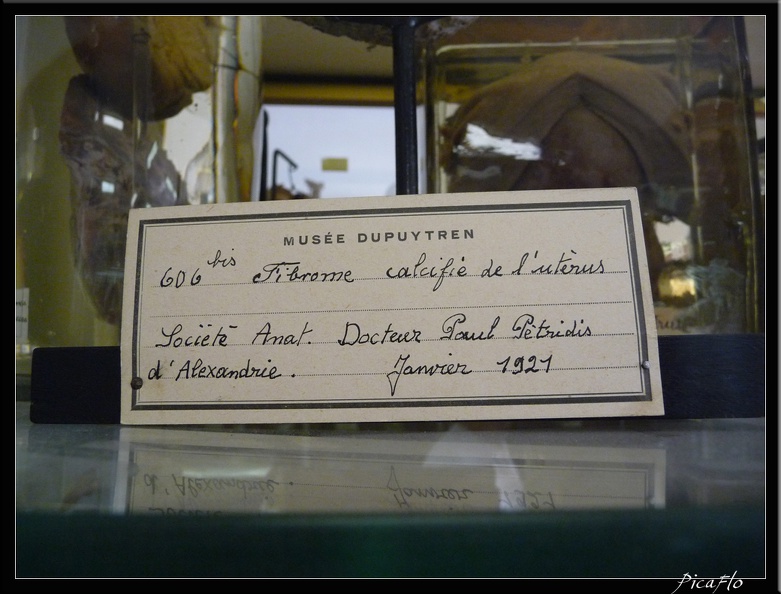 MUSÉE DUPUYTREN
606 bis Fibrome calcifié de l'utèrus
Société Anat. Docteur Paul Pètridis
d'Alexandrie. Janvier 1921
PicaFlo